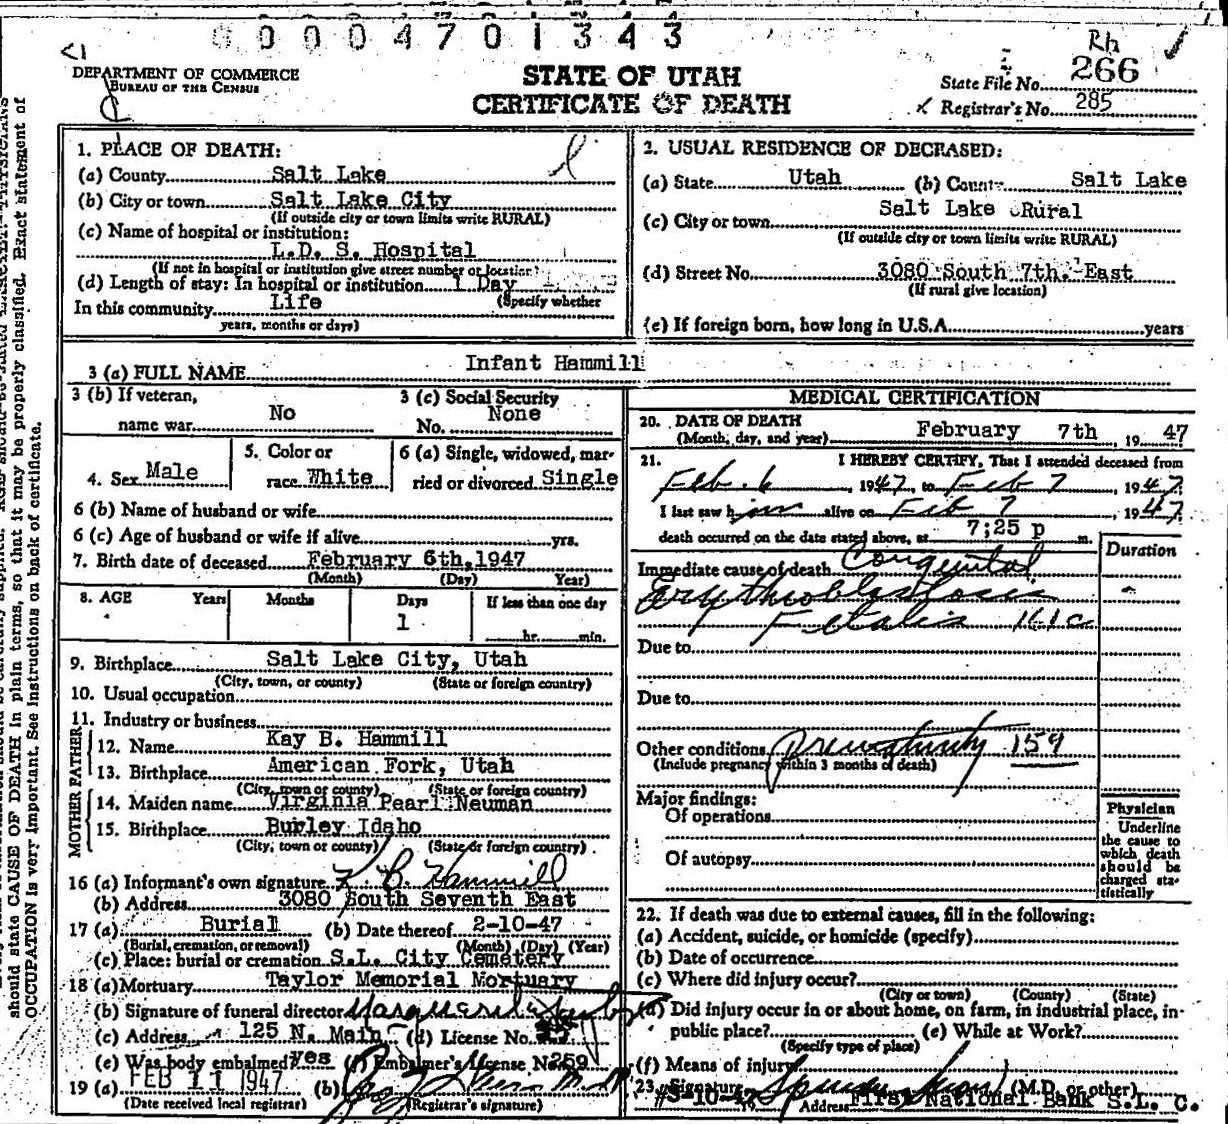 0 0 0 0 4 7 0 1 3 4 3
DEPARTMENT OF COMMERCE
BUREAU OF THE CENSUS
STATE OF UTAH
CERTIFICATE OF DEATH
Rh
State File No. 266
Registrar's No. 285
1. PLACE OF DEATH:
(a) County Salt Lake
(b) City or town Salt Lake City
(If outside city or town limits write RURAL)
(c) Name of hospital or institution:
L.D. S. Hospital
(If not in hospital or institution give street number or location)
(d) Length of stay: In hospital or institution 1 Day
(Specify whether
In this community Life
years, months or days)
2. USUAL RESIDENCE OF DECEASED:
(a) State Utah (b) County Salt Lake
(c) City or town Salt Lake Rural
(If outside city or town limits write RURAL)
(d) Street No. 3080 South 7th. East
(If rural give location)
(e) If foreign born, how long in U.S.A. years
3 (a) FULL NAME Infant Hammill
3 (b) If veteran,
name war No
3 (c) Social Security
No. None
4. Sex Male
5. Color or
race White
6 (a) Single, widowed, mar-
ried or divorced Single
6 (b) Name of husband or wife
6 (c) Age of husband or wife if alive yrs.
7. Birth date of deceased February 6th,1947
(Month) (Day) Year)
8. AGE Years Months Days If less than one day
1 hr. min.
9. Birthplace Salt Lake City, Utah
(City, town, or county) (State or foreign country)
10. Usual occupation
11. Industry or business
FATHER
12. Name Kay B. Hammill
13. Birthplace American Fork, Utah
(City, town or county) (State or foreign country)
MOTHER
14. Maiden name Virginia Pearl Neuman
15. Birthplace Burley Idaho
(City, town or county) (State or foreign country)
16 (a) Informant's own signature K. B. Hammill
(b) Address 3080 South Seventh East
17 (a) Burial (b) Date thereof 2-10-47
(Burial, cremation, or removal) (Month) (Day) (Year)
(c) Place: burial or cremation S.L. City Cemetery
18 (a) Mortuary Taylor Memorial Mortuary
(b) Signature of funeral director Marguerite Taylor
(c) Address 125 N. Main (d) License No.
(e) Was body embalmed? yes (f) Embalmer's License No 259
19 (a) FEB 11 1947 (b)
(Date received local registrar) (Registrar's signature)
MEDICAL CERTIFICATION
20. DATE OF DEATH
(Month, day, and year) February 7th, 19 47
21. I HEREBY CERTIFY, That I attended deceased from
Feb. 6, 1947, to Feb 7, 1947.
I last saw him alive on Feb 7, 1947
death occurred on the date stated above, at 7;25 p m.
Duration
Immediate cause of death Congenital
Erythroblastosis
Fetalis 161c
Due to
Due to
Other conditions Prematurity 159
(Include pregnancy within 3 months of death)
Major findings:
Of operations
Of autopsy
Physician
Underline
the cause to
which death
should be
charged sta-
tistically
22. If death was due to external causes, fill in the following:
(a) Accident, suicide, or homicide (specify)
(b) Date of occurrence
(c) Where did injury occur?
(City or town) (County) (State)
(d) Did injury occur in or about home, on farm, in industrial place, in-
public place? (e) While at Work?
(Specify type of place)
(f) Means of injury
23. Signature (M.D. or other)
#3-10-47 Address First National Bank S.L. C.
should state CAUSE OF DEATH in plain terms, so that it may be properly classified. Exact statement of
OCCUPATION is very important. See instructions on back of certificate.